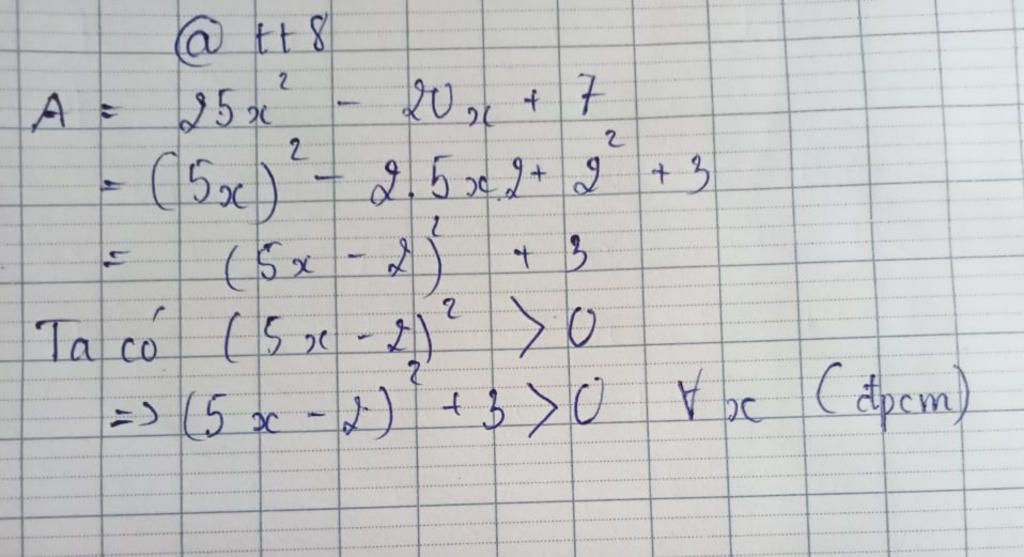 @ tt8
A = 25x² - 20x + 7
= (5x)² - 2.5x.2 + 2² + 3
= (5x - 2)² + 3
Ta có (5x - 2)² > 0
=> (5x - 2)² + 3 > 0 ∀x (đpcm)